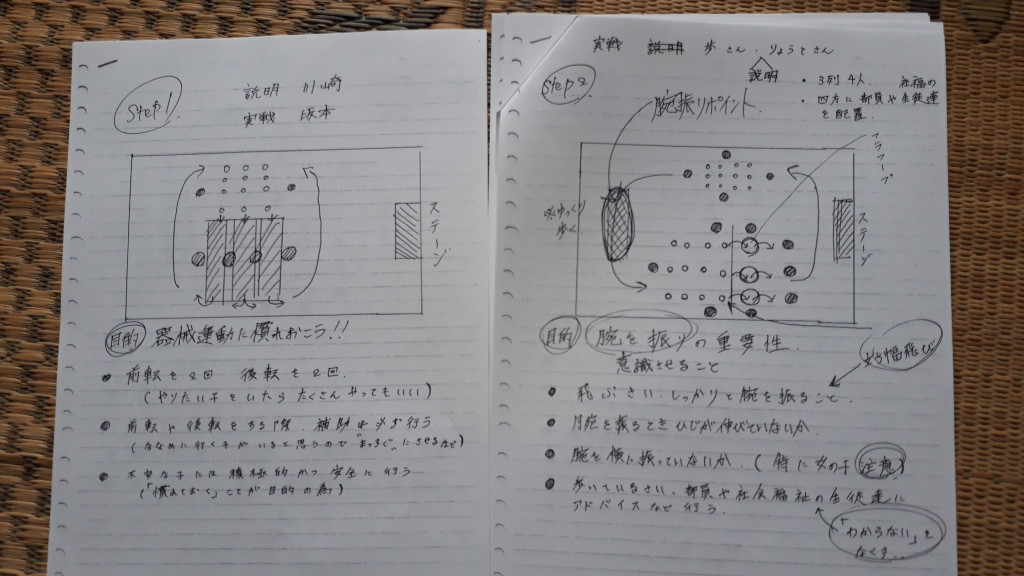 Step 1
説明 川崎
実戦 坂本
ステージ
目的 器械運動に慣れおこう!!
● 前転を2回 後転を2回.
(やりたい子をいたらたくさんやってもいい)
● 前転や後転をする際、補助は必ず行う
(ななめに行く子がいると思うので"まっすぐ"にさせるなど)
● 不安な子には積極的かつ安全に行う
(「慣れておく」ことが目的の為)
実戦 説明 歩さん、りょうとさん
説明
Step 2
・3列4人.
・四方に部員や社福の生徒達を配置.
腕振りポイント.
フラフープ
※ゆっくり歩く
ステージ
目的 腕を振りの重要性.
意識させること
立ち幅飛び
● 飛ぶさい、しっかりと腕を振ること.
● 腕を振るときひじが伸びていないか.
● 腕を横に振っていないか.(特に女の子注意)
● 歩いているさい、部員や社会福祉の生徒達にアドバイスなど行う.
「わからない」をなくす.